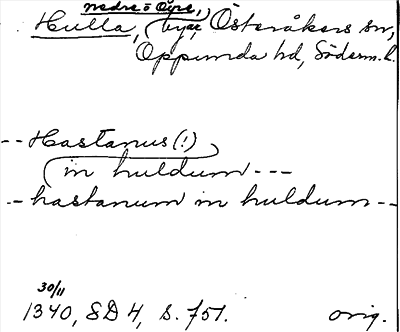 nedre o Övre,
Hulla, byar, Österåkers sn,
Oppunda hd, Söderm. l.
-- Hastanus (!)
in huldum ---
-- hastanum in huldum --
30/11
1340, SD 4, s. 751. orig.